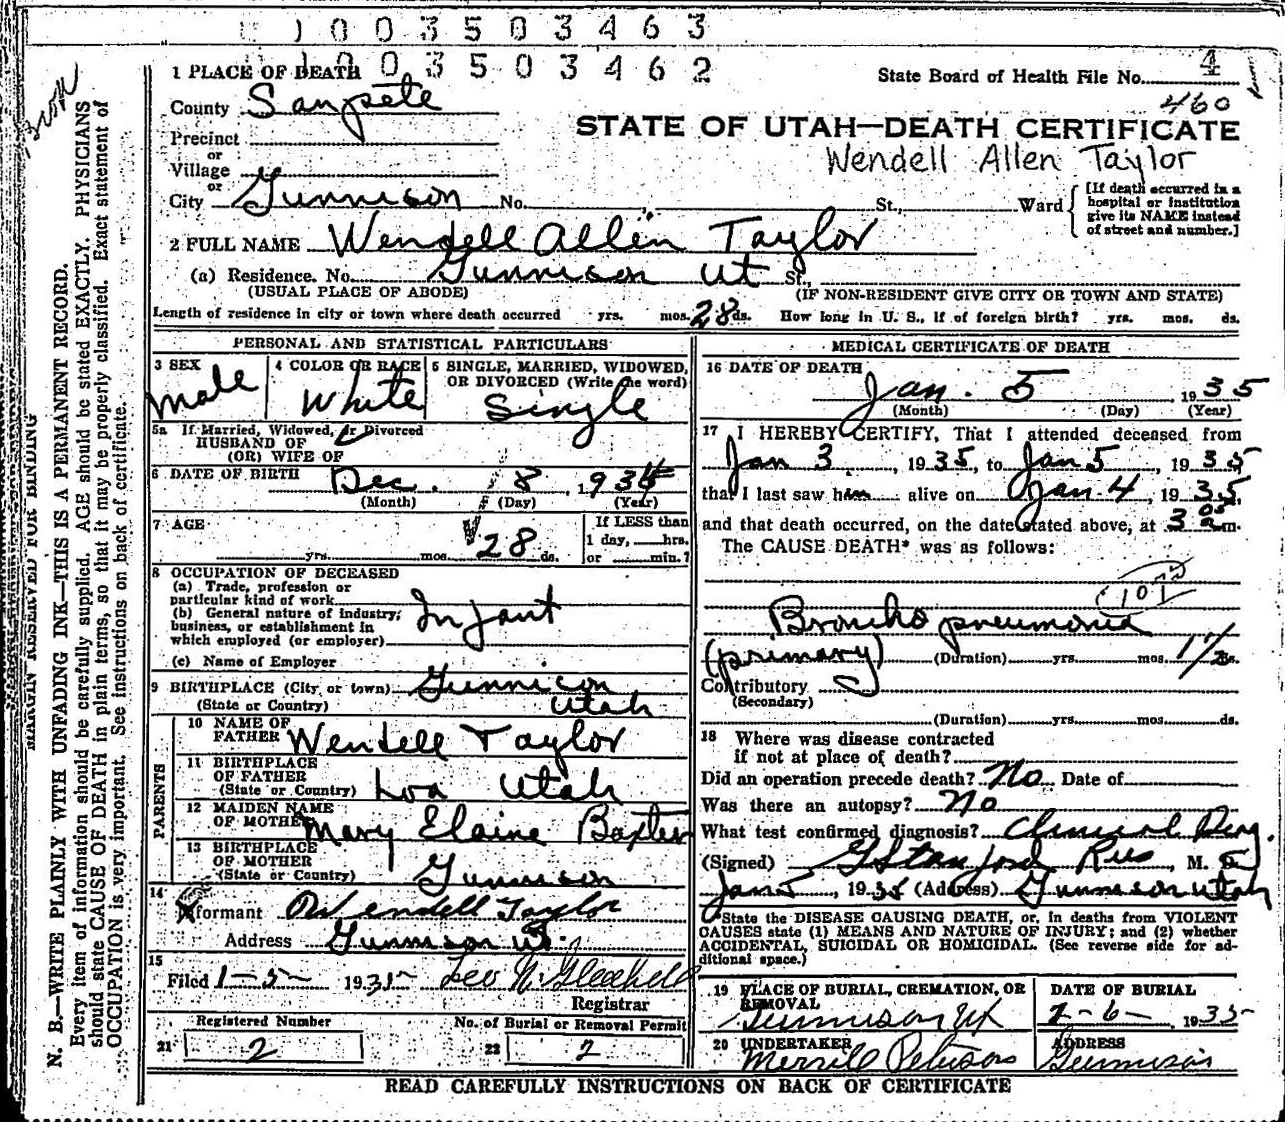 1 0 0 3 5 0 3 4 6 3
1 0 0 3 5 0 3 4 6 2
1 PLACE OF DEATH
State Board of Health File No. 4
County Sanpete
460
Precinct
STATE OF UTAH—DEATH CERTIFICATE
or
Village
Wendell Allen Taylor
or
City Gunnison No. St., Ward
[If death occurred in a
hospital or institution
give its NAME instead
of street and number.]
2 FULL NAME Wendell Allen Taylor
(a) Residence. No. Gunnison Ut St.,
(USUAL PLACE OF ABODE) (IF NON-RESIDENT GIVE CITY OR TOWN AND STATE)
Length of residence in city or town where death occurred yrs. mos. 28 ds. How long in U. S., if of foreign birth? yrs. mos. ds.
PERSONAL AND STATISTICAL PARTICULARS
3 SEX
Male
4 COLOR OR RACE
White
5 SINGLE, MARRIED, WIDOWED,
OR DIVORCED (Write the word)
Single
5a If Married, Widowed, or Divorced
HUSBAND OF
(OR) WIFE OF
6 DATE OF BIRTH Dec. 8, 1934
(Month) (Day) (Year)
7 AGE
yrs. mos. 28 ds.
If LESS than
1 day, hrs.
or min.?
8 OCCUPATION OF DECEASED
(a) Trade, profession or
particular kind of work
(b) General nature of industry,
business, or establishment in
which employed (or employer)
Infant
(c) Name of Employer
9 BIRTHPLACE (City or town) Gunnison
(State or Country) Utah
PARENTS
10 NAME OF
FATHER Wendell Taylor
11 BIRTHPLACE
OF FATHER
(State or Country) Loa Utah
12 MAIDEN NAME
OF MOTHER Mary Elaine Baxter
13 BIRTHPLACE
OF MOTHER
(State or Country) Gunnison
14
Informant Wendell Taylor
Address Gunnison Ut.
15
Filed 1-5- 1935 Leo
Registrar
Registered Number No. of Burial or Removal Permit
21 2 22 2
MEDICAL CERTIFICATE OF DEATH
16 DATE OF DEATH
Jan. 5 1935
(Month) (Day) (Year)
17 I HEREBY CERTIFY, That I attended deceased from
Jan 3, 1935, to Jan 5, 1935
that I last saw him alive on Jan 4, 1935,
and that death occurred, on the date stated above, at 3 00 a m.
The CAUSE DEATH* was as follows:
Broncho pneumonia
(primary) (Duration) yrs. mos. ds.
Contributory
(Secondary)
(Duration) yrs. mos. ds.
18 Where was disease contracted
if not at place of death?
Did an operation precede death? No Date of
Was there an autopsy? No
What test confirmed diagnosis? Clinical
(Signed) G Stanford Rees M. D.
Jan 5, 1935 (Address) Gunnison Utah
*State the DISEASE CAUSING DEATH, or, in deaths from VIOLENT
CAUSES state (1) MEANS AND NATURE OF INJURY; and (2) whether
ACCIDENTAL, SUICIDAL OR HOMICIDAL. (See reverse side for ad-
ditional space.)
19 PLACE OF BURIAL, CREMATION, OR
REMOVAL
Gunnison Ut
DATE OF BURIAL
1-6-, 1935
20 UNDERTAKER
Merrill Peterson
ADDRESS
Gunnison
READ CAREFULLY INSTRUCTIONS ON BACK OF CERTIFICATE
MARGIN RESERVED FOR BINDING
N. B.—WRITE PLAINLY WITH UNFADING INK—THIS IS A PERMANENT RECORD.
Every item of information should be carefully supplied. AGE should be stated EXACTLY. PHYSICIANS
should state CAUSE OF DEATH in plain terms, so that it may be properly classified. Exact statement of
OCCUPATION is very important. See instructions on back of certificate.